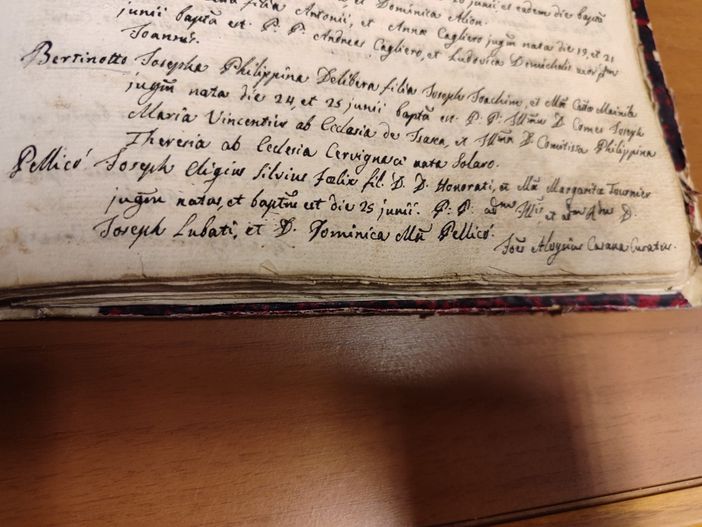 filia Antonii, et Dominica junii et eadem die baptã
junii baptã est. P. P. Andreas Cagliero, et Ludovica
Joannis.
Bertinotto Josepha Philippina Delibera filia Joseph Joachim, et Mã Catta
jugm nata die 24, et 25 junii baptã est. P. P. Illmus D. Comes Joseph
Maria Vincentius ab Ecclesia de et Illma D. Comitissa Philippina
Theresia ab Ecclesia Cervignasci nata Solaro.
Pellicó Joseph Eligius Silvius Fœlix fil. D. D. Honorati, et Mã Margaritæ Tournier
jugm natus, et baptm est die 25 junii. P. P. et D.
Joseph Lubati, et D. Dominica Mã Pellicó.
Joēs Aloysius Casana Curatus.